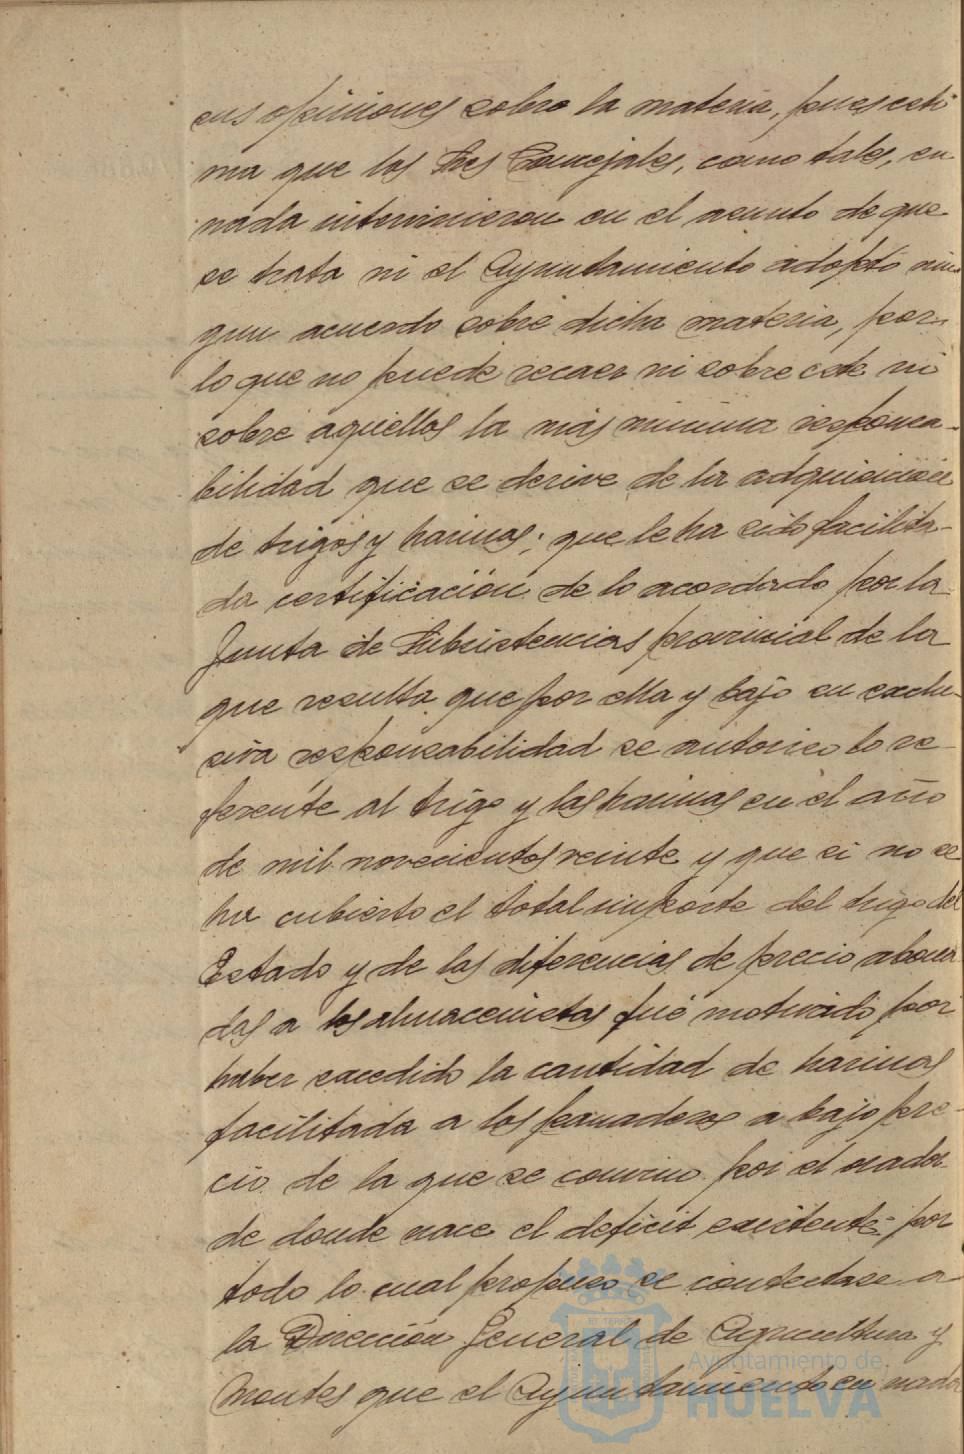 sus opiniones sobre la materia, pues esti-
ma que los Sres Concejales, como tales, en
nada intervinieron en el asunto de que
se trata ni el Ayuntamiento adoptó nin-
gun acuerdo sobre dicha materia, por
lo que no puede recaer ni sobre este ni
sobre aquellos la más minima responsa-
bilidad que se derive de la adquisición
de trigos y harinas; que le ha sido facilita-
da certificación de lo acordado por la
Junta de Subsistencias provincial de la
que resulta que por ella y bajo su exclu-
siva responsabilidad se autorizo lo re-
ferente al trigo y las harinas en el año
de mil novecientos veinte y que si no se
ha cubierto el total importe del trigo del
Estado y de las diferencias de precio abona
das a los almacenistas fué motivado por
haber excedido la cantidad de harinas
facilitada a los panaderos a bajo pre-
cio de la que se convino por el orador
de donde nace el deficit existente: por
todo lo cual propuso se contestase a
la Dirección General de Agricultura y
Montes que el Ayuntamiento en nada
Ayuntamiento de
HUELVA